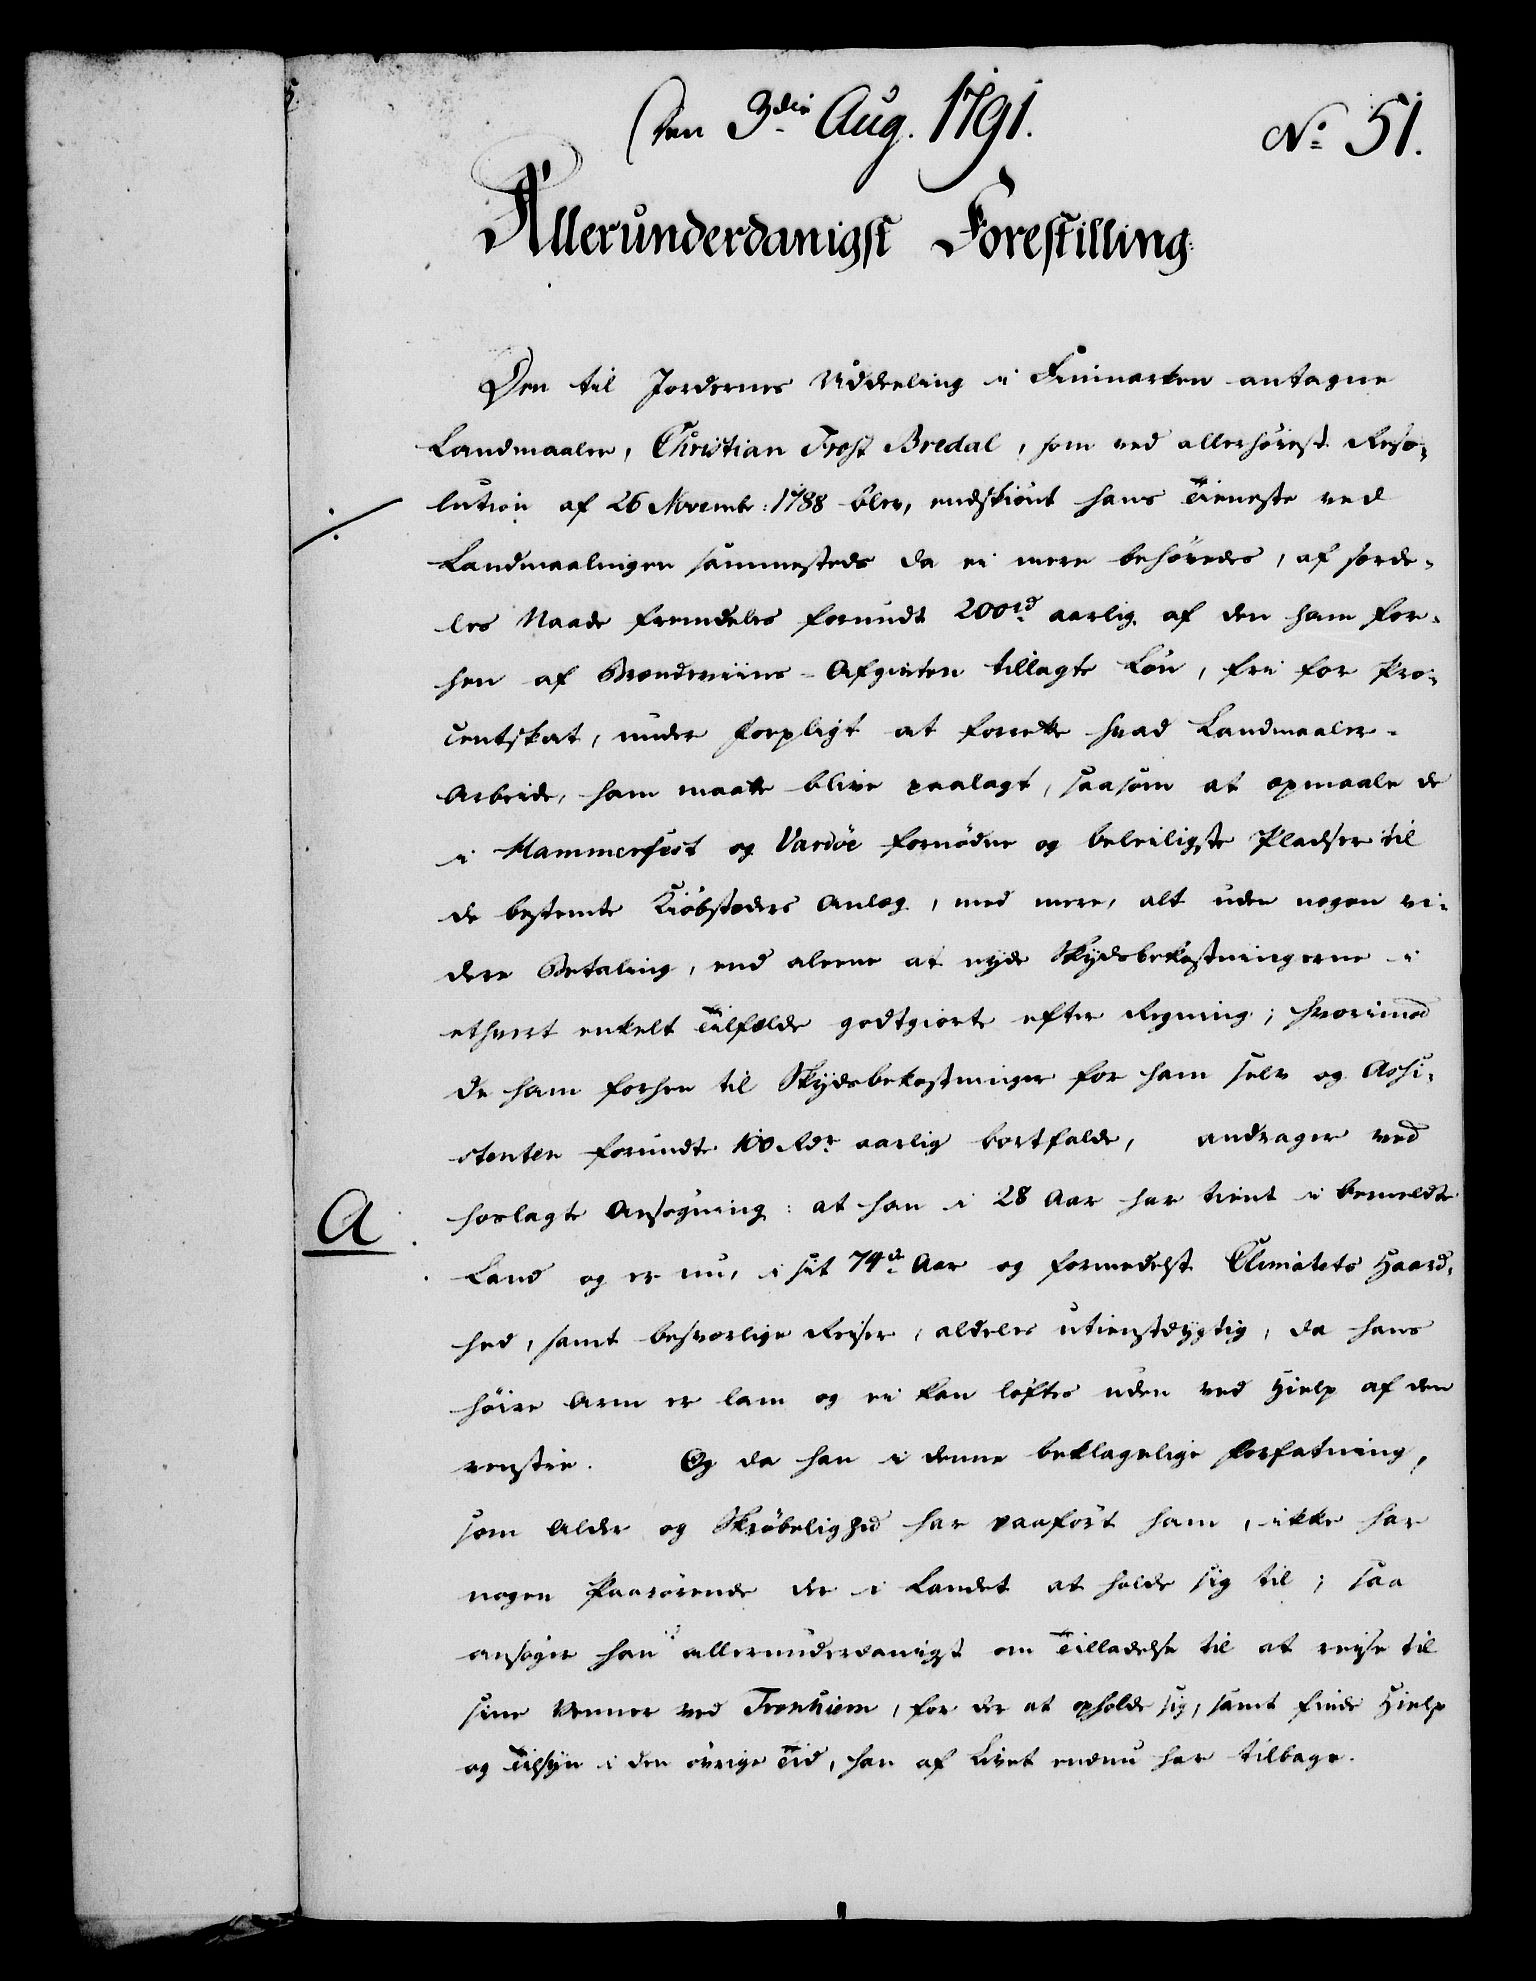 Den 3die Aug. 1791.
No 51.
Allerunderdanigst Forestilling.
Den til Jordernes Uddeeling i Finmarken antagne
Landmaaler, Christian Frost Bredal, som ved allerhöiest Reso-
lution af 26 Novembr: 1788 blev, endskiönt hans Tieneste ved
Landmaalingen sammesteds da ei mere behövedes, af særde-
les Naade fremdeles forundt 200rd aarlig af den ham for-
hen af Brændeviins-Afgivten tillagte Lön, frie for Pro-
centskat, under Forpligt at forrette hvad Landmaaler-
Arbeide, ham maatte blive paalagt, saasom at opmaale de
i Hammerfest og Vardöe fornödne og beleiligste Pladser til
de bestemte Kiöbstæders Anlæg, med mere, alt uden nogen vi-
dere Betaling, end alene at nyde Skydsbekostningerne i
ethvert enkelt Tilfælde godtgiorte efter Regning; hvorimod
de ham forhen til Skydsbekostninger for ham selv og Assi-
stenten forundte 100 Rdr aarlig bortfaldt, andrager ved
A. hoslagte Ansögning: at han i 28 Aar har tient i bemeldte
Land og er nu, i sit 74de Aar og formedelst Climatets Haard-
hed, samt besværlige Reiser, aldeles utienstdygtig, da hans
höire Arm er lam og ei kan löftes uden ved Hielp af den
venstre. Og da han i denne beklagelige Forfatning,
som Alder og Skröbelighed har paafört ham, ikke har
nogen Paarörende der i Landet at holde sig til; saa
ansöger han allerunderdanigst om Tilladelse til at reise til
sine Venner ved Tronhiem, for der at opholde sig, samt finde Hielp
og Tilsyn i den övrige Tid, han af Livet endnu har tilbage.